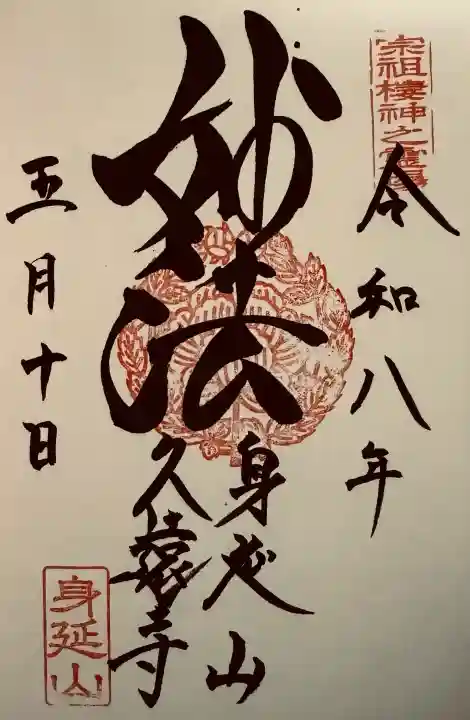 宗祖棲神之霊場
令和八年
妙法
身延山
久遠寺
五月十日
身延山